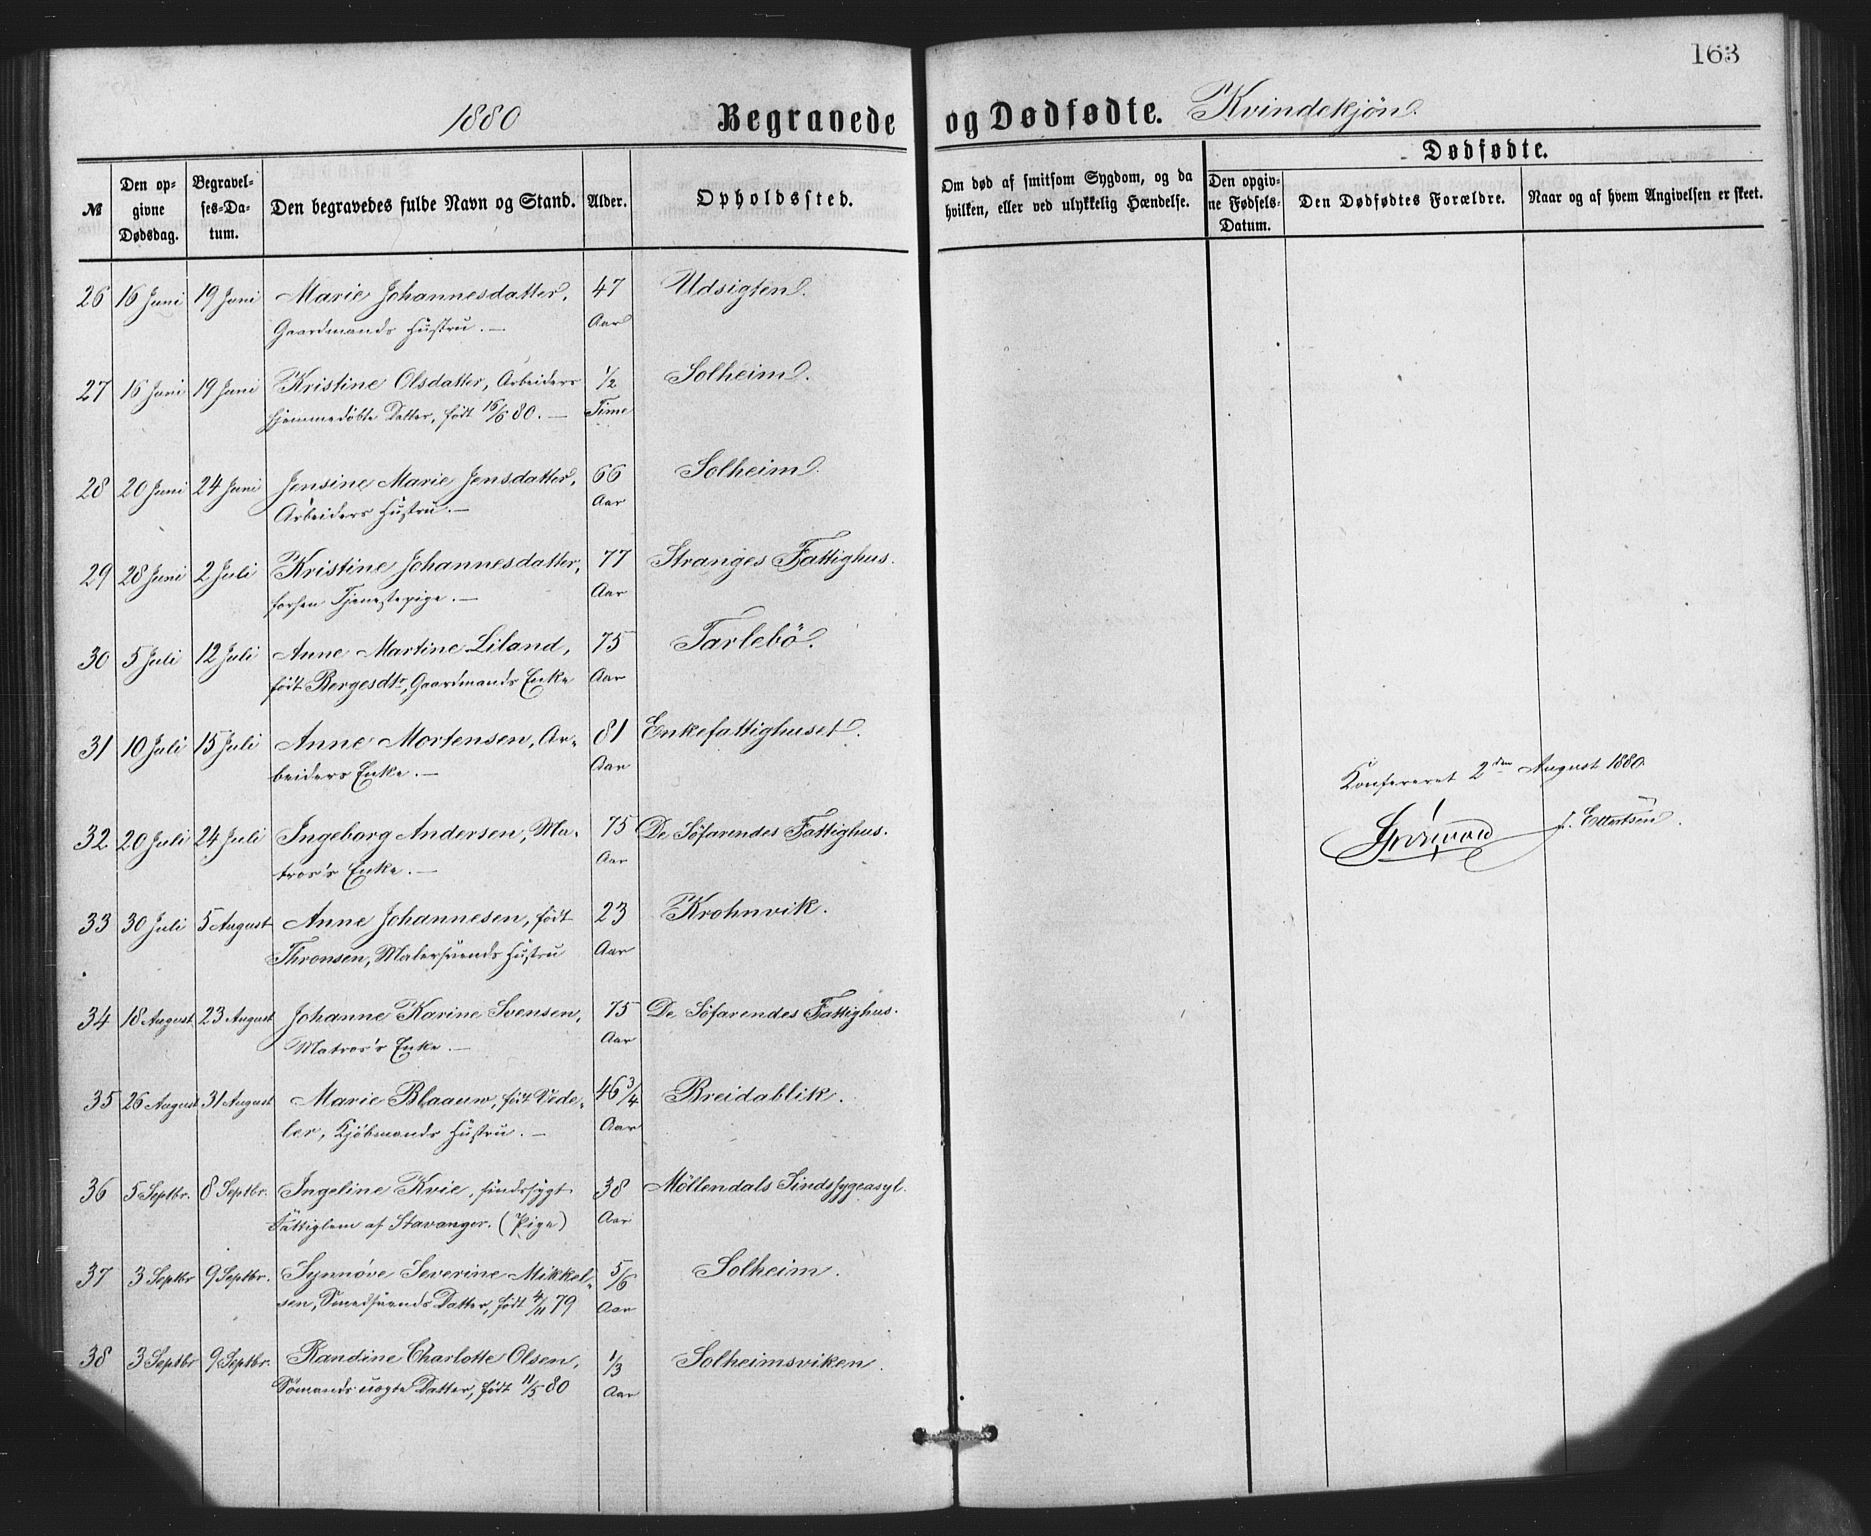 163
1880 Begravede og Dødfødte. Kvindekjøn.
№
Den opgivne Dødsdag.
Begravelses-Datum.
Den begravedes fulde Navn og Stand.
Alder.
Opholdssted.
Om død af smitsom Sygdom, og da hvilken, eller ved ulykkelig Hændelse.
Dødfødte.
Den opgivne Fødsels-Datum.
Den Dødfødtes Forældre.
Naar og af hvem Angivelsen er skeet.
26 16 Juni 19 Juni Marie Johannesdatter, 47 Udsigten.
Gaardmands Hustru. — Aar
27 16 Juni 19 Juni Kristine Olsdatter, Arbeiders 1/2 Solheim.
hjemmedøbte Datter, født 16/6 80. — Time
28 20 Juni 24 Juni Jensine Marie Jensdatter, 66 Solheim.
Arbeiders Hustru. — Aar
29 28 Juni 2 Juli Kristine Johannesdatter, 77 Stranges Fattighus.
forhen Tjenestepige. — Aar
30 5 Juli 12 Juli Anne Martine Liland, 75 Tarlebö.
født Bergesdtr, Gaardmands Enke Aar
31 10 Juli 15 Juli Anne Mortensen, Ar- 81 Enkefattighuset.
beiders Enke. — Aar
Konfereret 2den August 1880.
32 20 Juli 24 Juli Ingeborg Andersen, Ma- 75 De Söfarendes Fattighus.
tros's Enke. — Aar
33 30 Juli 5 August Anne Johannesen, født 23 Krohnvik.
Thronsen, Malersvends Hustru Aar
34 18 August 23 August Johanne Karine Svensen, 75 De Söfarendes Fattighus.
Matros's Enke. — Aar
35 26 August 31 August Marie Blaauw, født Vede- 46 3/4 Breidablik.
ler, Kjøbmands Hustru. — Aar
36 5 Septbr. 8 Septbr. Ingeline Kvie, sindssygt 38 Möllendals Sindssygeasyl.
Fattiglem af Stavanger. (Pige) Aar
37 3 Septbr 9 Septbr. Synnöve Severine Mikkel- 5/6 Solheim.
sen, Smedsvends Datter, født 4/11 79 Aar
38 3 Septbr 9 Septbr. Randine Charlotte Olsen, 1/3 Solheimsviken.
Sømands uægte Datter, født 11/5 80 Aar